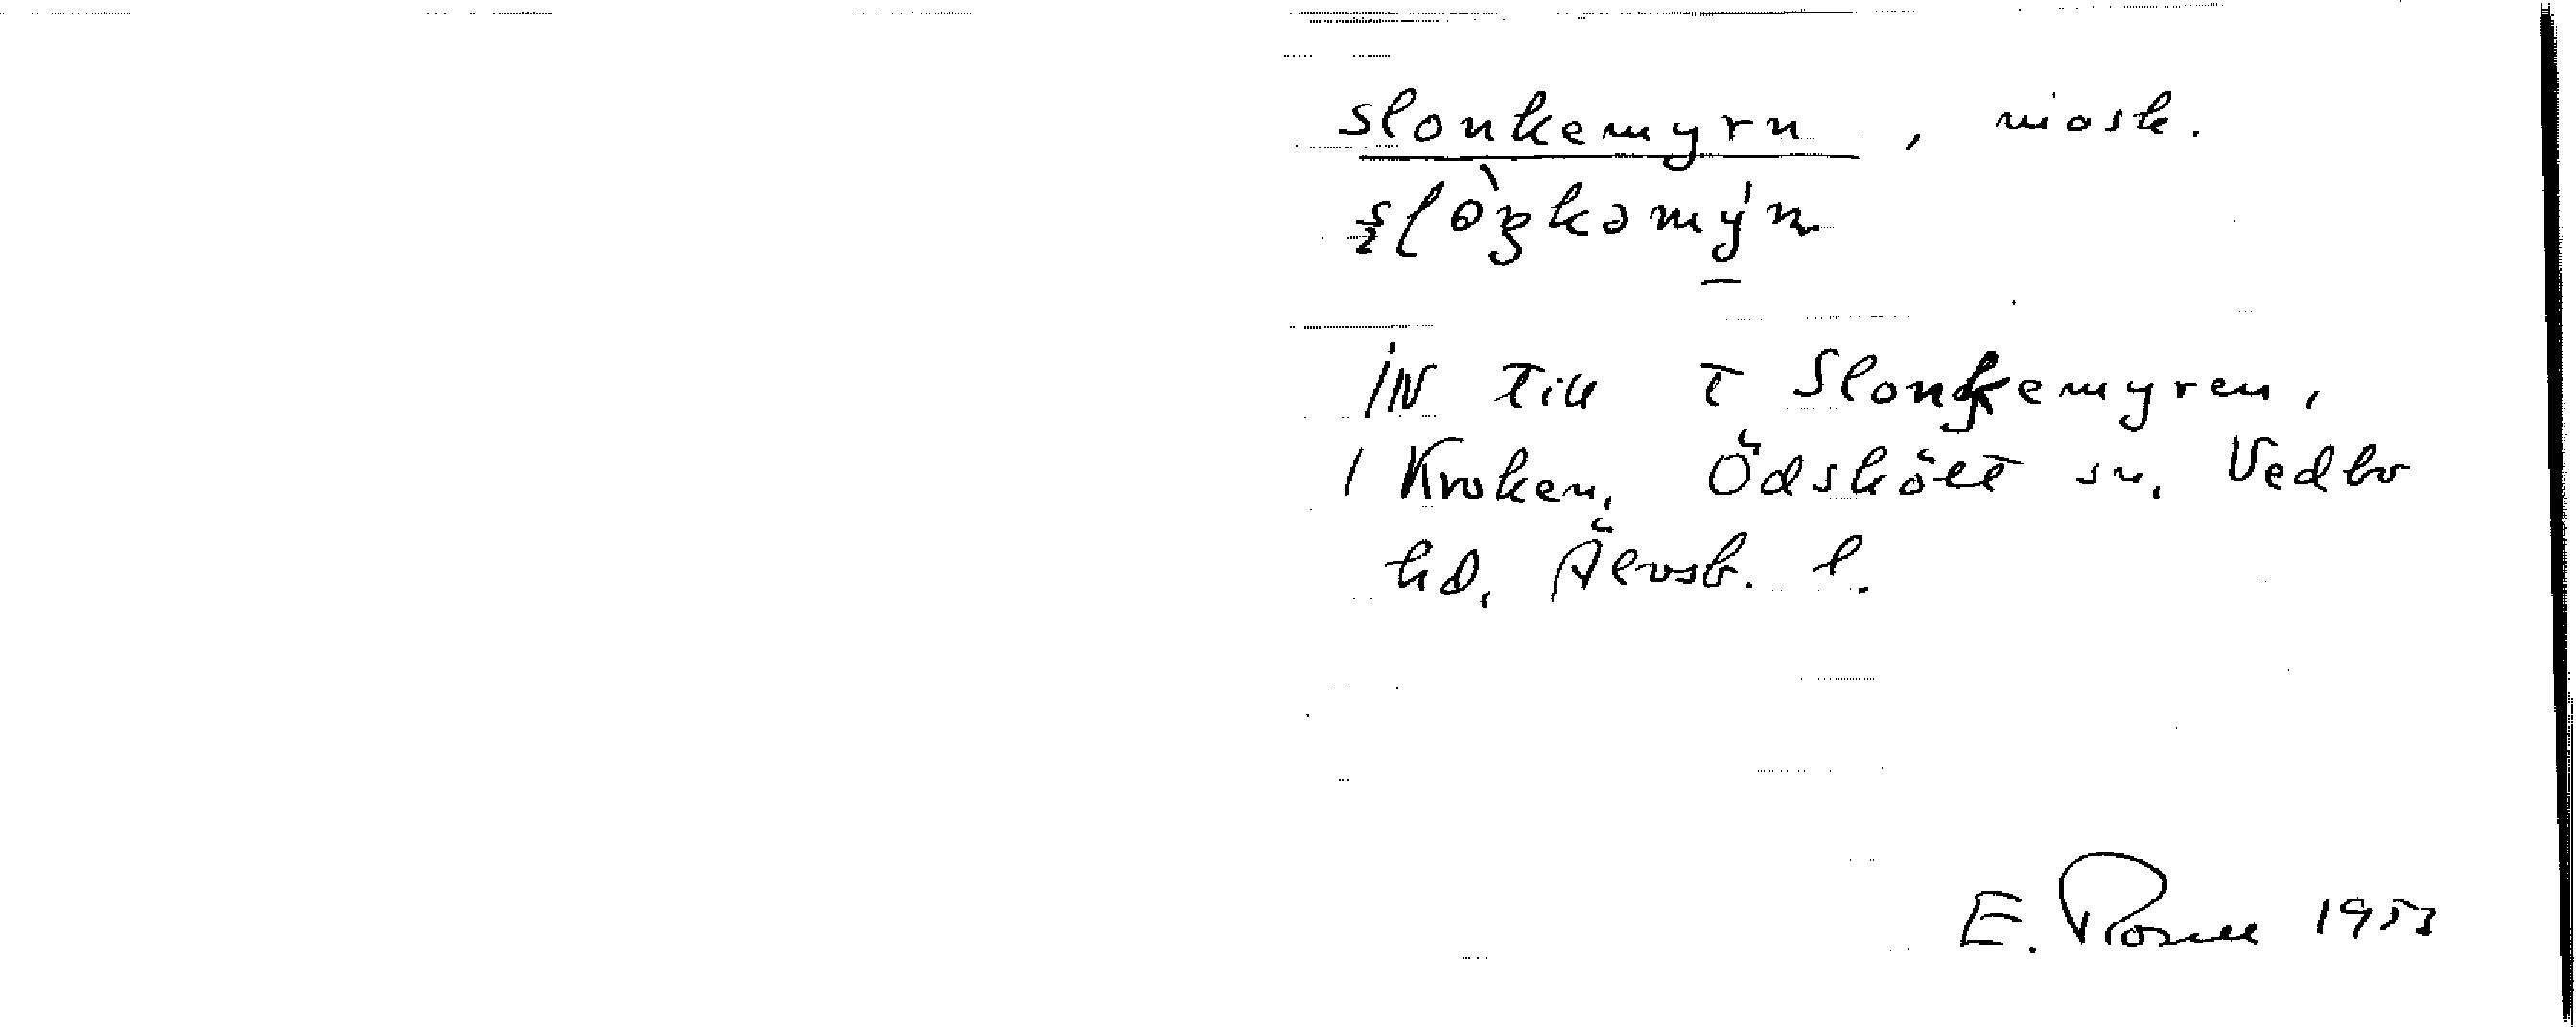 slonkemyrn, mosk.
IN till T Slonkemyren,
1 Kroken, Ödskölt sn, Vedbo
hd, Älvsb. l.
E. Rosell 1953